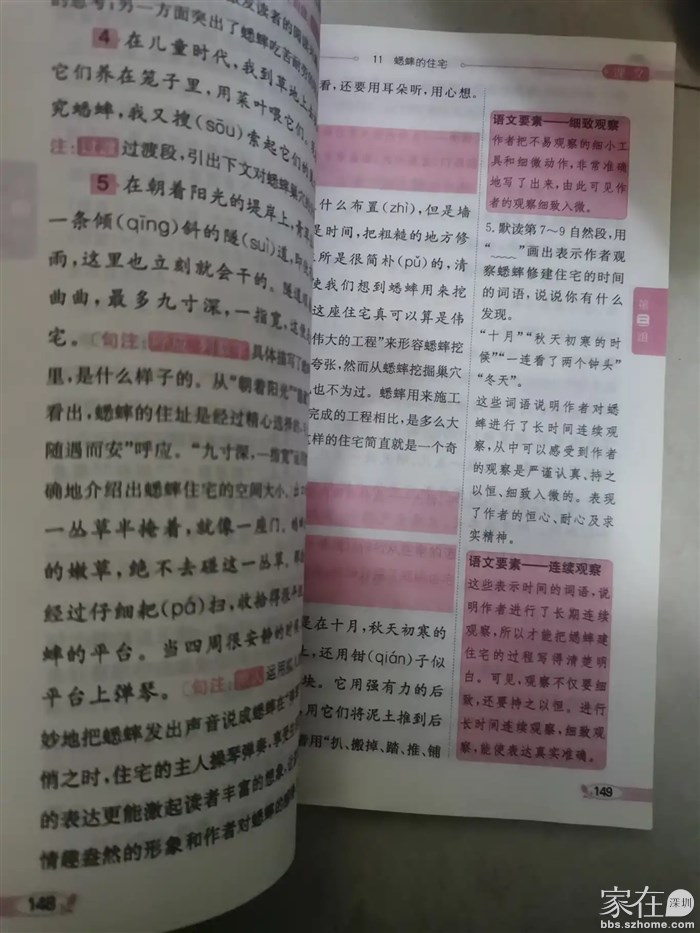 的思考；另一方面突出了蟋蟀吃苦耐劳
4 在儿童时代，我到草地上去
它们养在笼子里，用菜叶喂它们。
究蟋蟀，我又搜(sōu)索起它们的
注：过渡过渡段，引出下文对蟋蟀巢穴
5 在朝着阳光的堤岸上，青
一条倾(qīng)斜的隧(suì)道，即
雨，这里也立刻就会干的。隧道
曲曲，最多九寸深，一指宽，这便
宅。〔句注：具体描写了
里，是什么样子的。从“朝着阳光”
看出，蟋蟀的住址是经过精心选择的，
随遇而安”呼应。“九寸深，一指宽”
确地介绍出蟋蟀住宅的空间大小。
一丛草半掩着，就像一座门。
的嫩草，绝不去碰这一丛草。
经过仔细耙(pá)扫，收拾得很
蟀的平台。当四周很安静的时
平台上弹琴。〔句注：运用
妙地把蟋蟀发出声音说成蟋蟀在
悄之时，住宅的主人操琴弹奏，享受
的表达更能激起读者丰富的想象，
情趣盎然的形象和作者对蟋蟀的
148
11 蟋蟀的住宅
看，还要用耳朵听，用心想。
什么布置(zhì)，但是墙
是时间，把粗糙的地方修
所是很简朴(pǔ)的，清
使我们想到蟋蟀用来挖
这座住宅真可以算是伟
伟大的工程”来形容蟋蟀挖
夸张，然而从蟋蟀挖掘巢穴
，也不为过。蟋蟀用来施工
完成的工程相比，是多么大
这样的住宅简直就是一个奇
是在十月，秋天初寒的
上，还用钳(qián)子似
块。它用强有力的后
，用它们将泥土推到后
者用“扒、搬掉、踏、推、铺
语文要素——细致观察
作者把不易观察的细小工
具和细微动作，非常准确
地写了出来，由此可见作
者的观察细致入微。
5. 默读第7~9自然段，用
“﹏﹏”画出表示作者观
察蟋蟀修建住宅的时间
的词语，说说你有什么
发现。
“十月”“秋天初寒的时
候”“一连看了两个钟头”
“冬天”。
这些词语说明作者对蟋
蟀进行了长时间连续观
察，从中可以感受到作者
的观察是严谨认真、持之
以恒、细致入微的。表现
了作者的恒心、耐心及求
实精神。
语文要素——连续观察
这些表示时间的词语，说
明作者进行了长期连续
观察，所以才能把蟋蟀建
住宅的过程写得清楚明
白。可见，观察不仅要细
致，还要持之以恒。进行
长时间连续观察，细致观
察，能使表达真实准确。
第三
149
家在深圳
bbs.szhome.com